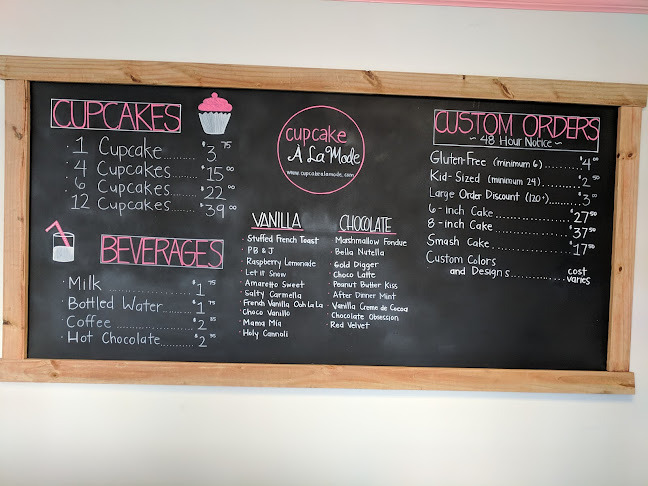 CUPCAKES
· 1 Cupcake ........ $3 75
· 4 Cupcakes ........ $15 00
· 6 Cupcakes ........ $22 00
· 12 Cupcakes ........ $39 00
BEVERAGES
· Milk ........ $1 75
· Bottled Water ........ $1 75
· Coffee ........ $2 85
· Hot Chocolate ........ $2 95
cupcake
À La Mode
www.cupcakealamode.com
VANILLA
· Stuffed French Toast
· PB & J
· Raspberry Lemonade
· Let it Snow
· Amaretto Sweet
· Salty Carmella
· French Vanilla Ooh La La
· Choco Vanillo
· Mama Mia
· Holy Cannoli
CHOCOLATE
· Marshmallow Fondue
· Bella Nutella
· Gold Digger
· Choco Latte
· Peanut Butter Kiss
· After Dinner Mint
· Vanilla Creme de Cocoa
· Chocolate Obsession
· Red Velvet
CUSTOM ORDERS
~ 48 Hour Notice ~
Gluten-Free (minimum 6) ........ $4 00
Kid-Sized (minimum 24) ........ $2 50
Large Order Discount (120+) ........ $3 00
6-inch Cake ........ $27 50
8-inch Cake ........ $37 50
Smash Cake ........ $17 50
Custom Colors
and Designs ........ cost
varies